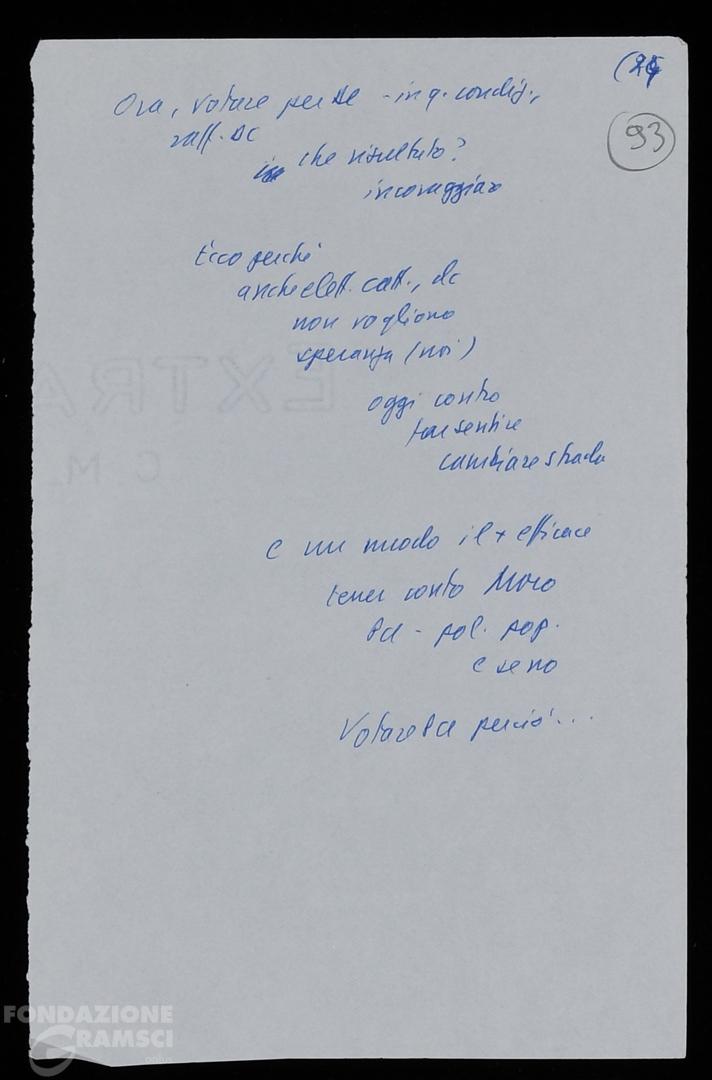 (24
93
Ora, votare per DC - in q. condiz.,
raff. DC
che risultato?
incoraggiare
Ecco perché
anche elett. catt., dc
non vogliono
speranza (noi)
oggi contro
far sentire
cambiare strada
E un modo il + efficace
tener conto
Pci - pol. pop.
e se no
Votare Pci perciò...
EXTRA
C. M.
FONDAZIONE
GRAMSCI
onlus